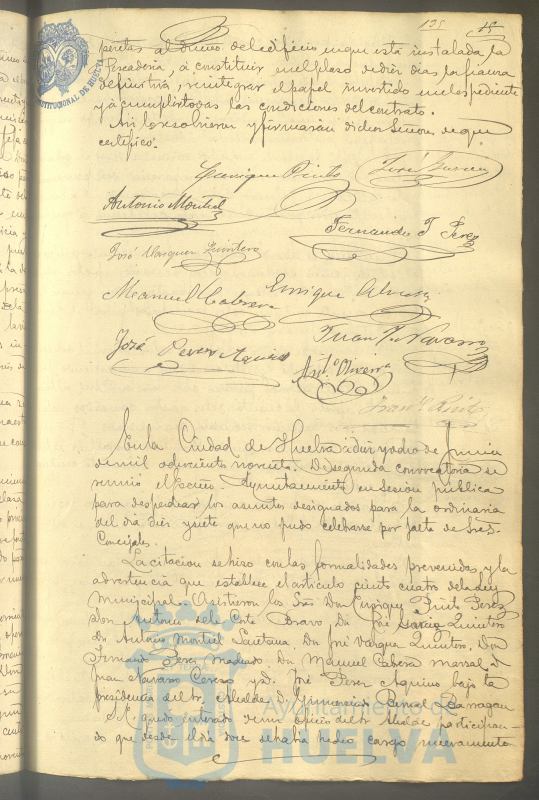 135 15
pesetas al dueño del edificio en que está instalada la
Pescadería, á constituir en el plazo de diez dias la fianza
definitiva, reintegrar el papel invertido en el espediente
y á cumplir todas las condiciones del contrato.
Asi lo resolvieron y firmarán dichos Señores, de que
certifico.
CONSTITUCIONAL DE HUELVA
Enrique Pinto José Garcia
Antonio Montiel
Fernando T Perez
José Vazquez Quintero
Manuel Cabrera Enrique
José Perez Aquino Juan Navarro
Antº Oliveira
Franº
En la Ciudad de Huelva á diez y ocho de Junio
de mil ochocientos noventa. De segunda convocatoria se
reunió el Excmo Ayuntamiento en sesion publica
para despachar los asuntos designados para la ordinaria
del dia diez y siete que no pudo celebrarse por falta de Sres
Concejales.
La citacion se hizo con las formalidades prevenidas, y la
advertencia que establece el articulo ciento cuatro de la ley
Municipal. Asistieron los Sres Don Enrique Pinto Perez
don Antonio de la Corte Bravo Dn José Garcia Quintero
Dn Antonio Montiel Santana Dn José Vazquez Quintero, Don
Fernando Perez Machado Dn Manuel Cabrera
Juan Navarro Cerezo y D. José Perez Aquino bajo la
presidencia del Sr. Alcalde D. Barragan
S. E. quedó enterado de un oficio del Sr. Alcalde participan
do que desde el dia doce se habia hecho cargo nuevamente
Ayuntamiento de
HUELVA